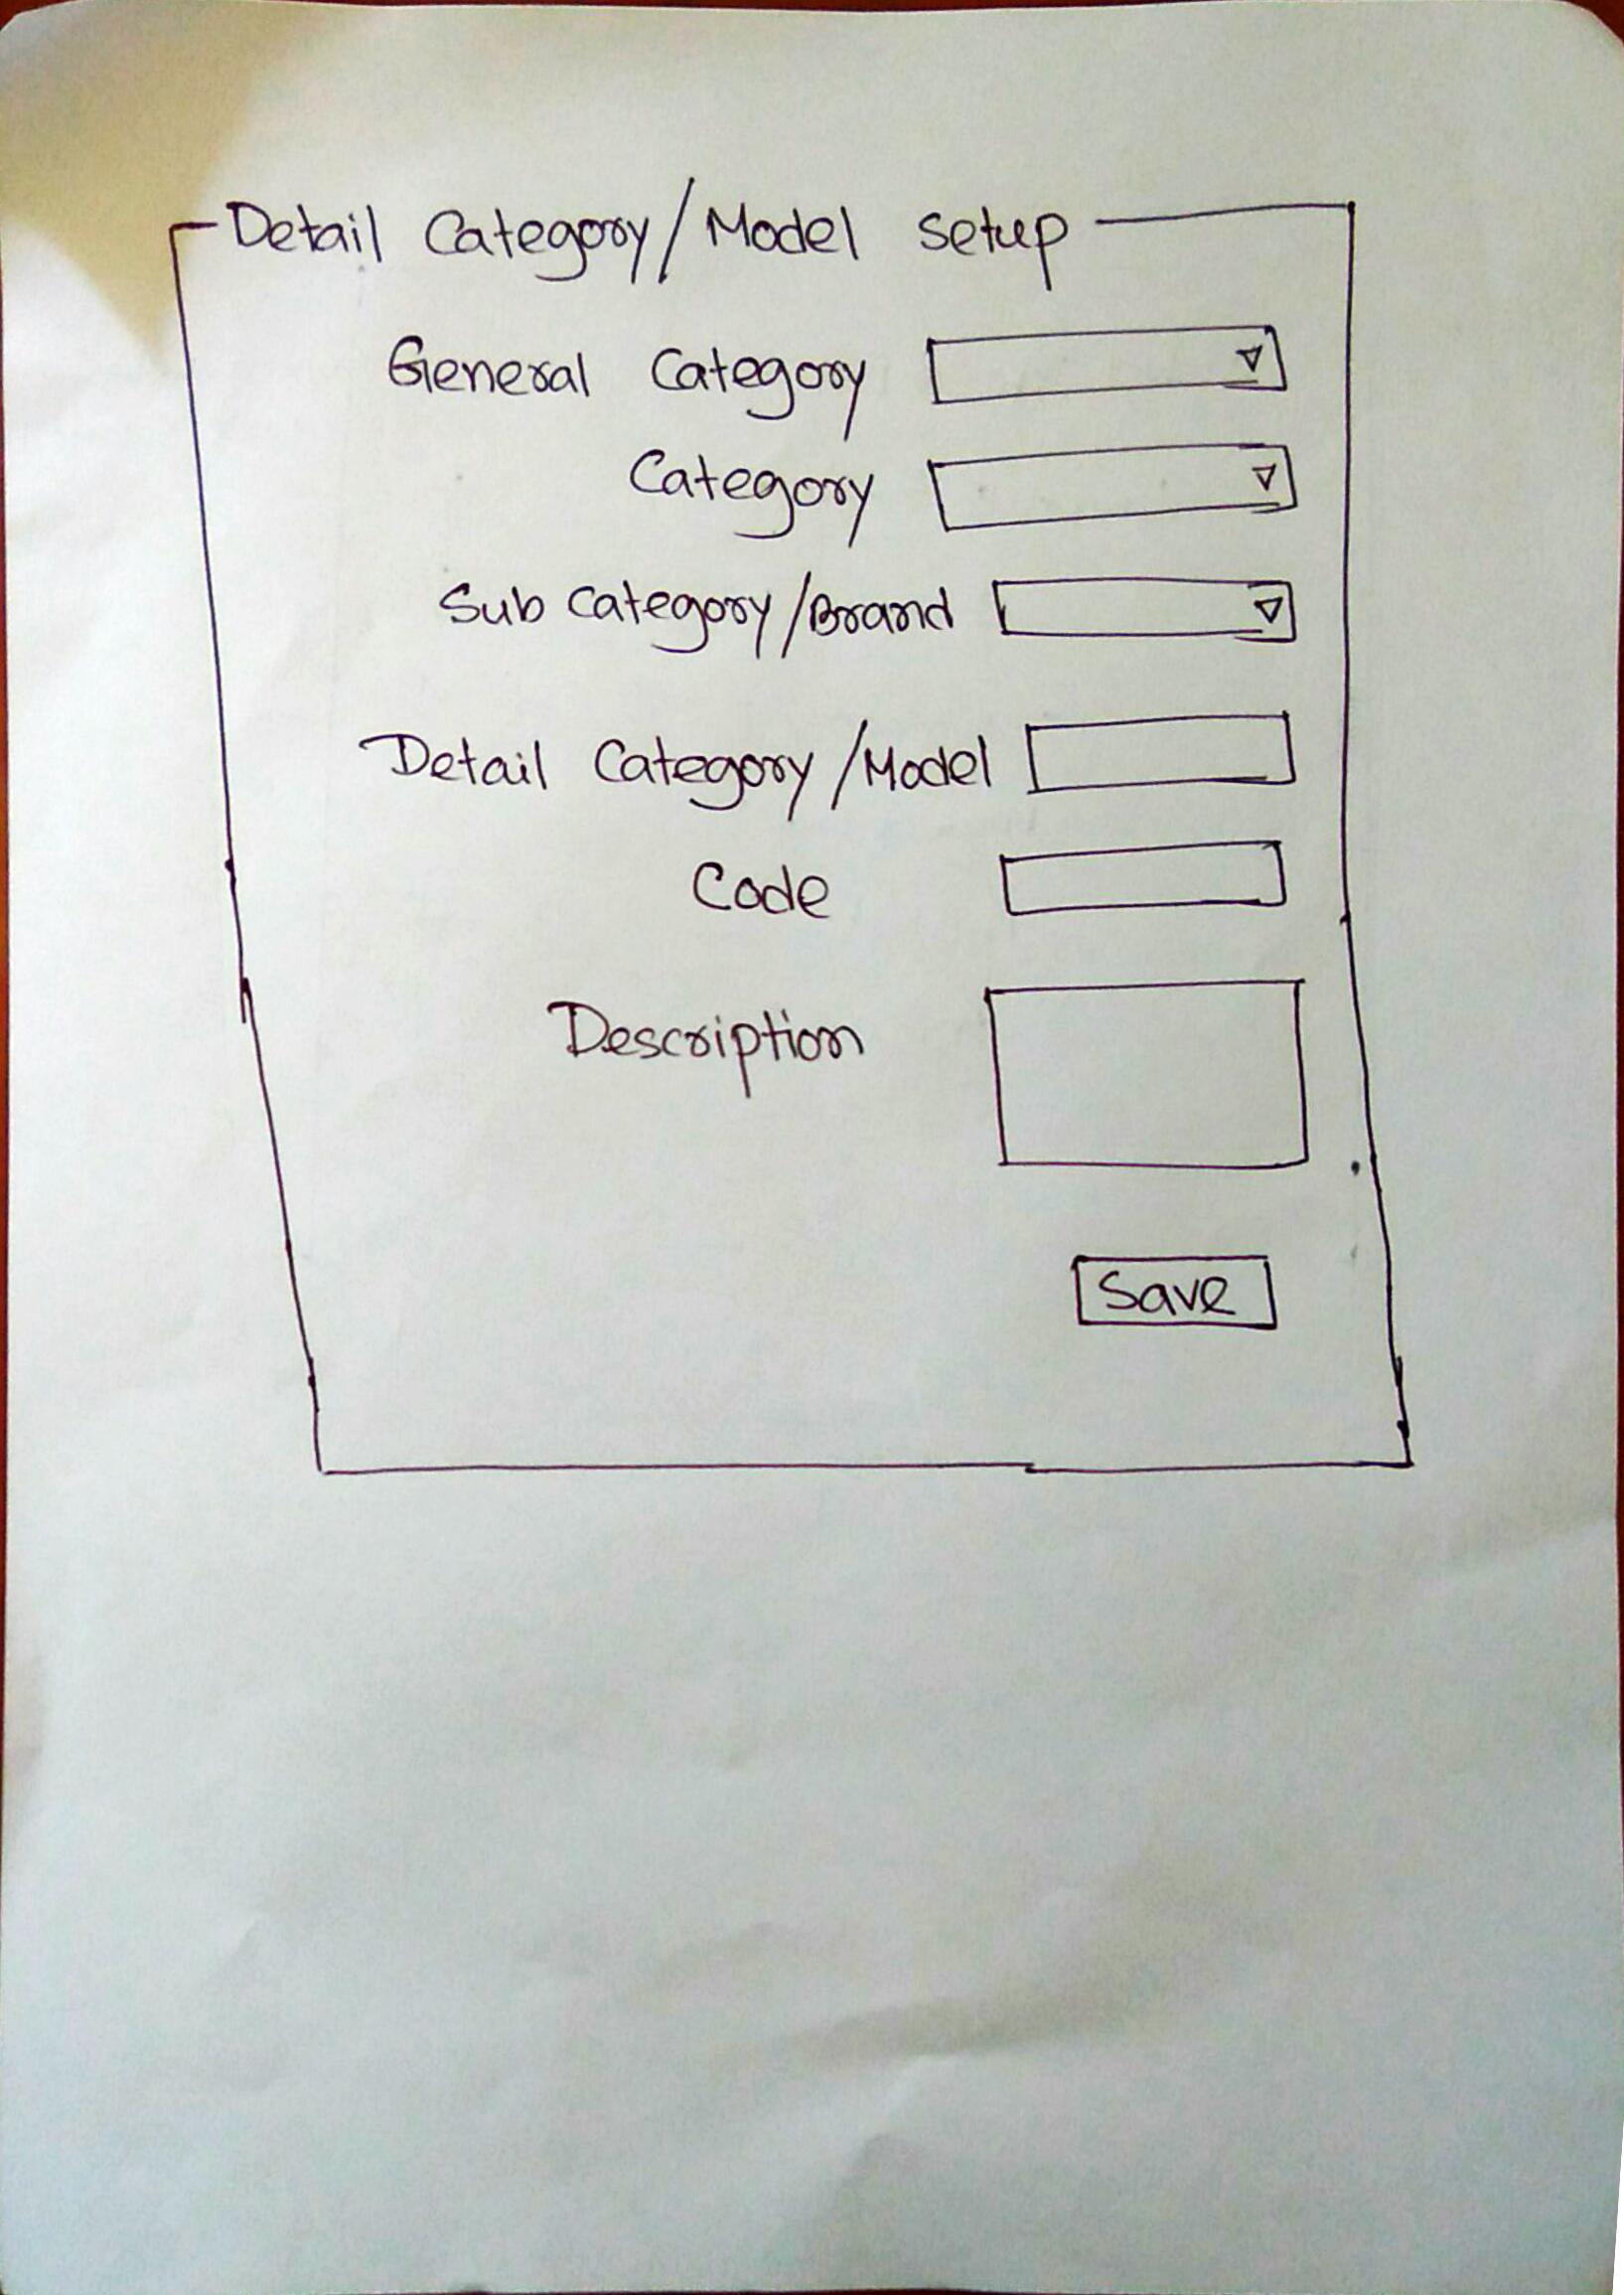 Detail Category/Model Setup
General Category
Category
Sub Category/Brand
Detail Category/Model
Code
Description
Save